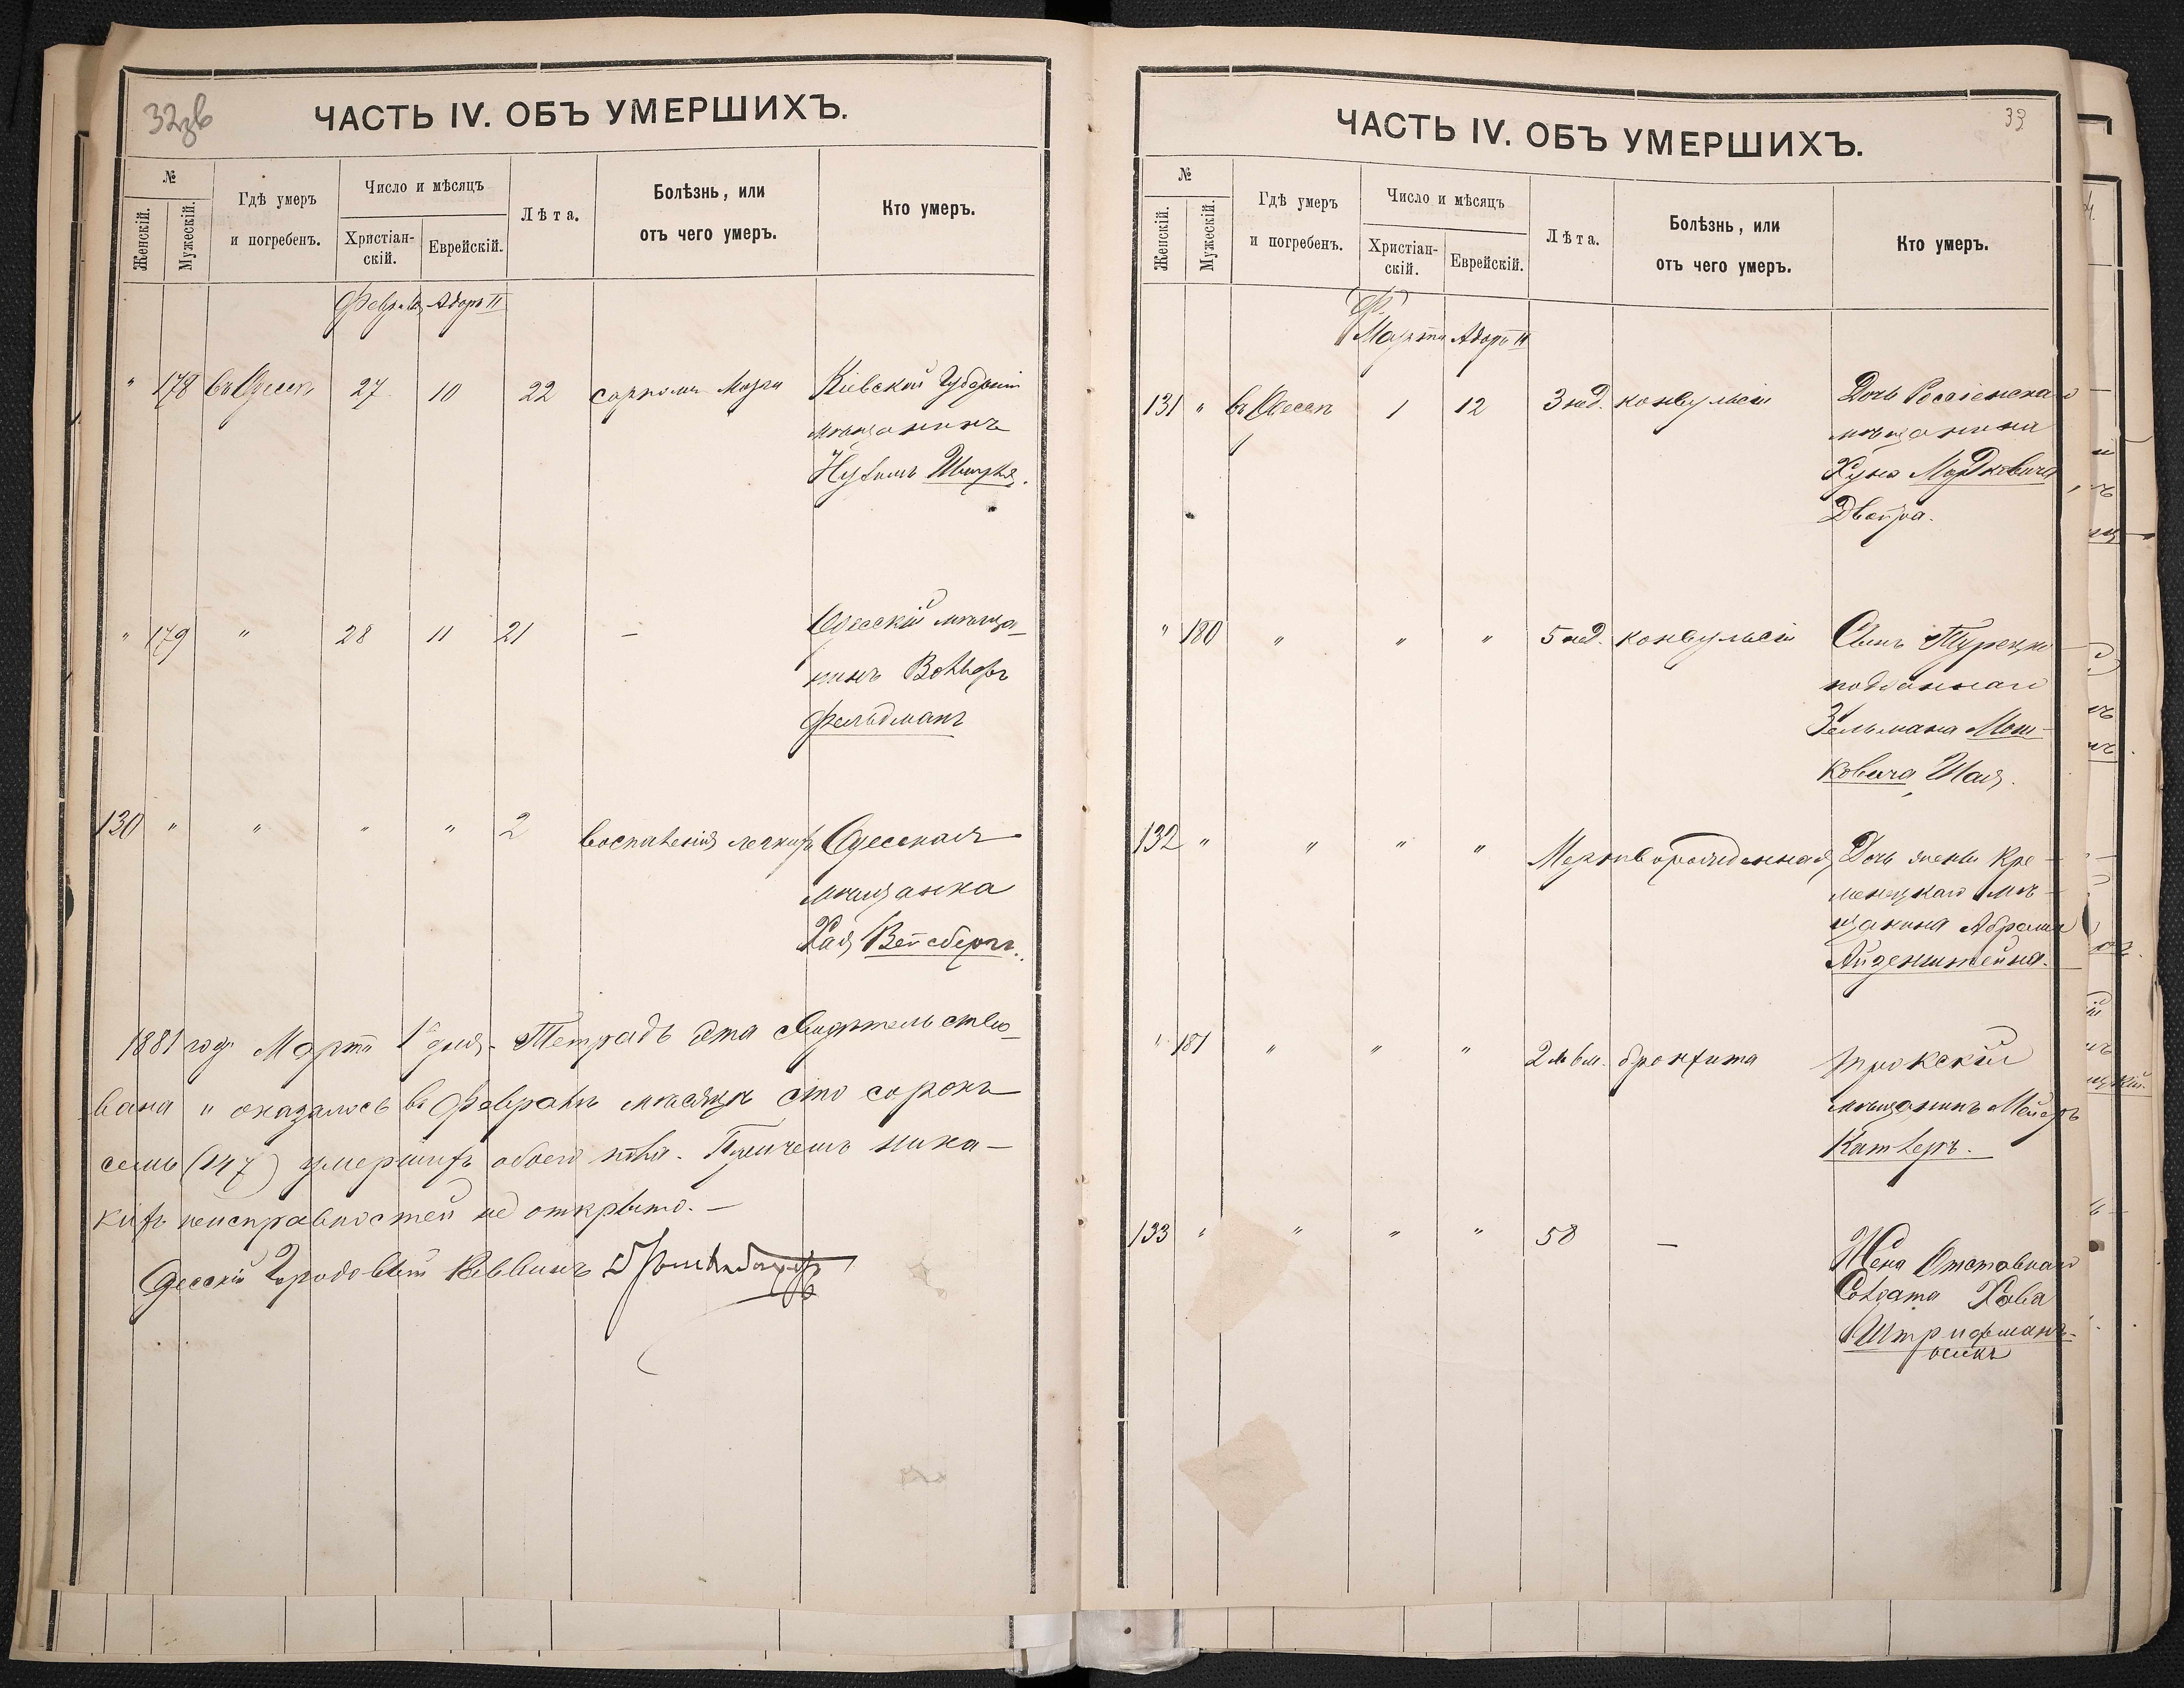 32зв
ЧАСТЬ IV. ОБЪ УМЕРШИХЪ.
№
Женскій.
Мужескій.
Гдѣ умеръ
и погребенъ.
Число и мѣсяцъ
Христіан-
скій.
Еврейскій.
Лѣта.
Болѣзнь, или
отъ чего умеръ.
Кто умеръ.
Февраля Адоръ II
" 178 въ Одессѣ 27 10 22 Мозга Кіевской Губерніи
мѣщанинъ
Нухимъ
" 179 " 28 11 21 — Одесскій мѣща-
нинъ Вольфъ
Фельдманъ
130 " " " " 2 воспаленія легкихъ Одесская
мѣщанка
Хая Вейсбергъ.
1881 года Марта 1 дня. Тетрадь эта свидѣтельство-
вана и оказалось въ Февралѣ мѣсяцѣ сто сорокъ
семь (147) умершихъ обоего пола. Причемъ ника-
кихъ неисправностей не открыто. —
Одесскій Городовой Раввинъ
33
ЧАСТЬ IV. ОБЪ УМЕРШИХЪ.
№
Женскій.
Мужескій.
Гдѣ умеръ
и погребенъ.
Число и мѣсяцъ
Христіан-
скій.
Еврейскій.
Лѣта.
Болѣзнь, или
отъ чего умеръ.
Кто умеръ.
Ф.
Марта Адоръ II
131 " въ Одессѣ 1 12 3 нед. конвульсіи Дочь Россіенскаго
мѣщанина
Хуна Мордковича
Двойра.
" 180 " " " 5 нед. конвульсіи Сынъ Турецко
подданнаго
Зельмана Мош-
ковича Шая.
132 " " " " Мертворожденная Дочь жены Кре-
менецкаго мѣ-
щанина Абрама
Айзенштейна.
" 181 " " " 2 бронхита Трокскій
мѣщанинъ Мейеръ
Кантеръ.
133 " " " " 58 — Жена Отставнаго
Солдата Хава
Штрифманъ-